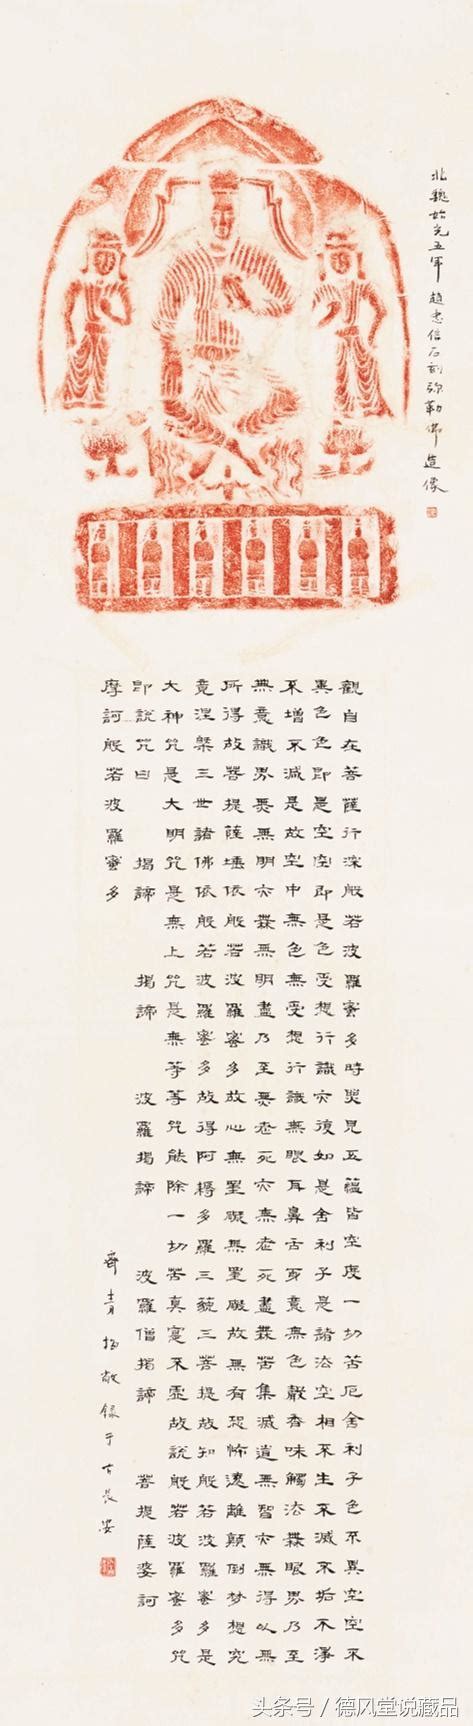 北魏始光五年 趙忠信石刻弥勒佛造像
觀自在菩薩行深般若波羅蜜多時照見五蘊皆空度一切苦厄舍利子色不異空空不
異色色即是空空即是色受想行識亦復如是舍利子是諸法空相不生不滅不垢不淨
不增不減是故空中無色無受想行識無眼耳鼻舌身意無色聲香味觸法無眼界乃至
無意識界無無明亦無無明盡乃至無老死亦無老死盡無苦集滅道無智亦無得以無
所得故菩提薩埵依般若波羅蜜多故心無罣礙無罣礙故無有恐怖遠離顛倒梦想究
竟涅槃三世諸佛依般若波羅蜜多故得阿耨多羅三藐三菩提故知般若波羅蜜多是
大神咒是大明咒是無上咒是無等等咒能除一切苦真實不虛故說般若波羅蜜多咒
即說咒曰 揭諦 揭諦 波羅揭諦 波羅僧揭諦 菩提薩婆訶
摩訶般若波羅蜜多
齊青拓敬録于古長安
头条号 / 德风堂说藏品